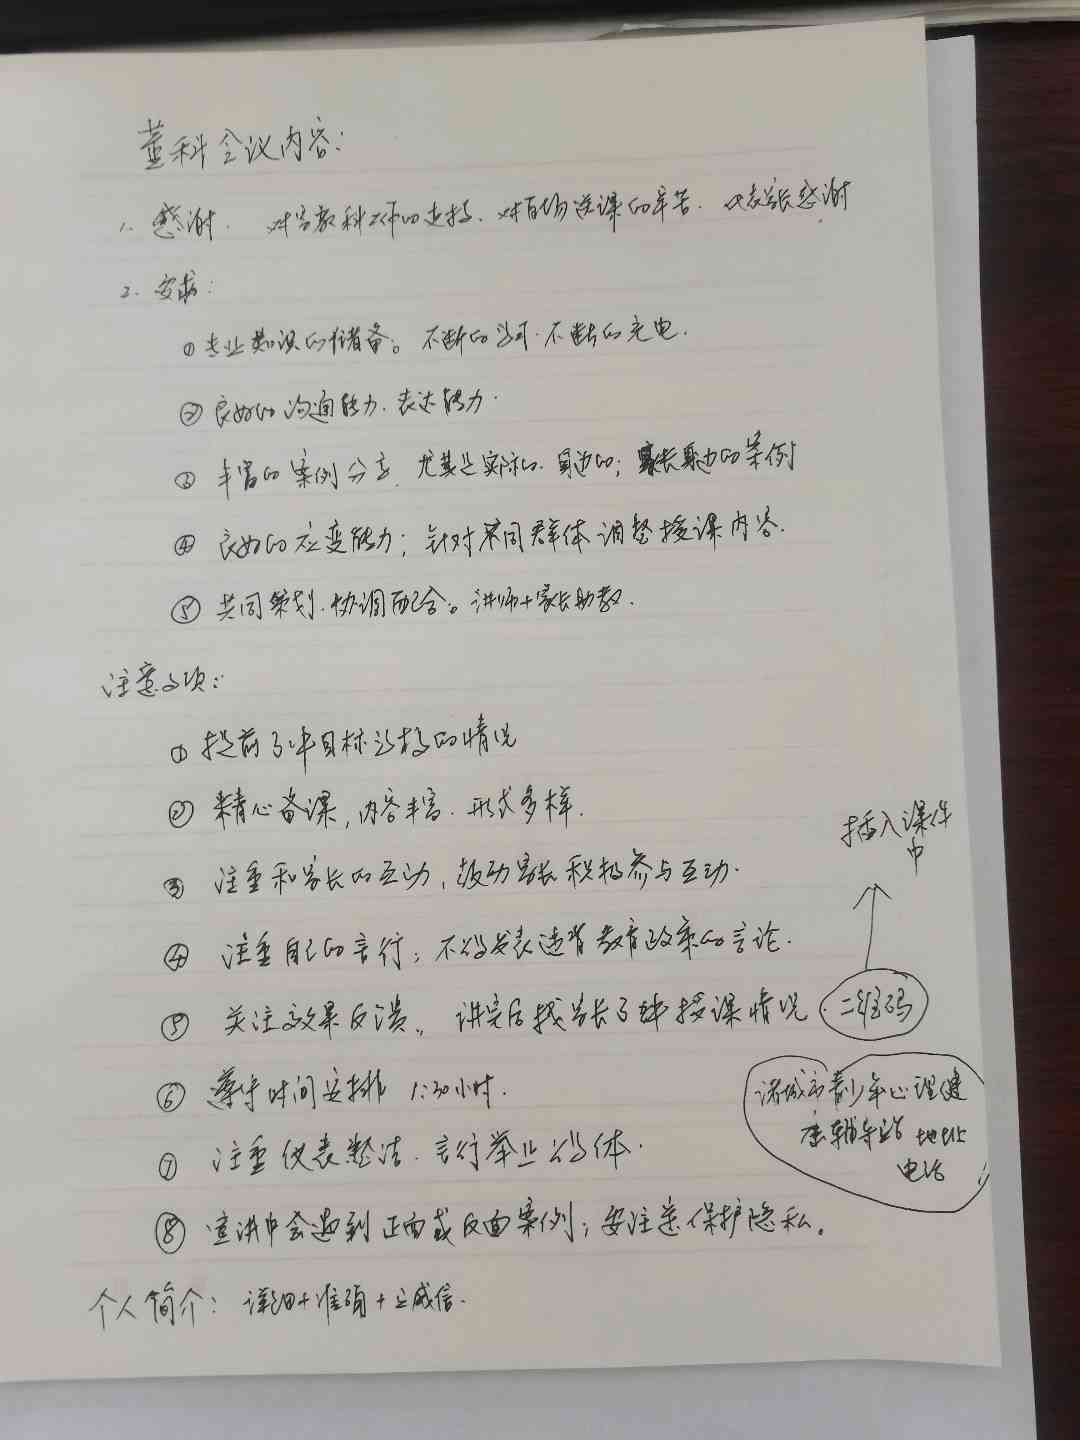 董科会议内容：
1. 感谢. 对家教科工作的支持、对百场送课的辛苦、代表家长感谢
2. 要求：
①专业知识的储备。不断的学习.不断的充电.
②良好的沟通能力.表达能力.
③ 丰富的案例分享,尤其是实际的.身边的；家长身边的案例
④ 良好的应变能力；针对不同群体调整授课内容.
⑤ 共同策划.协调配合。讲师+家长助教.
注意事项：
① 提前了解目标学校的情况
② 精心备课,内容丰富.形式多样.
③ 注重和家长的互动,鼓动家长积极参与互动.
④ 注重自己的言行；不得发表违背教育政策的言论.
⑤ 关注效果反馈。讲完后找家长了解授课情况.
⑥ 遵守时间安排 1:30小时.
⑦ 注重仪表整洁.言行举止得体.
⑧ 宣讲中会遇到正面或反面案例；要注意保护隐私。
个人简介：详细+准确+立威信.
插入课件
中
二维码
诸城市青少年心理健
康辅导站 地址
电话